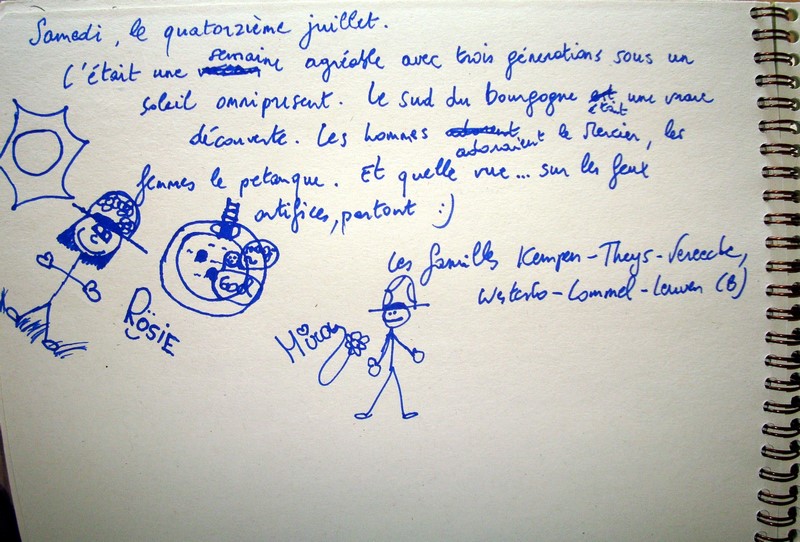 Samedi, le quatorzième juillet.
C'était une semaine agréable avec trois générations sous un
soleil omniprésent. Le sud du bourgogne était une vraie
découverte. Les hommes adoraient le Mercier, les
femmes le petanque. Et quelle vue... sur les feux
artifices, partout :)
Les familles Kempen-Theys-Vereecke,
Westerlo-Lommel-Leuven (B)
RÖSIE